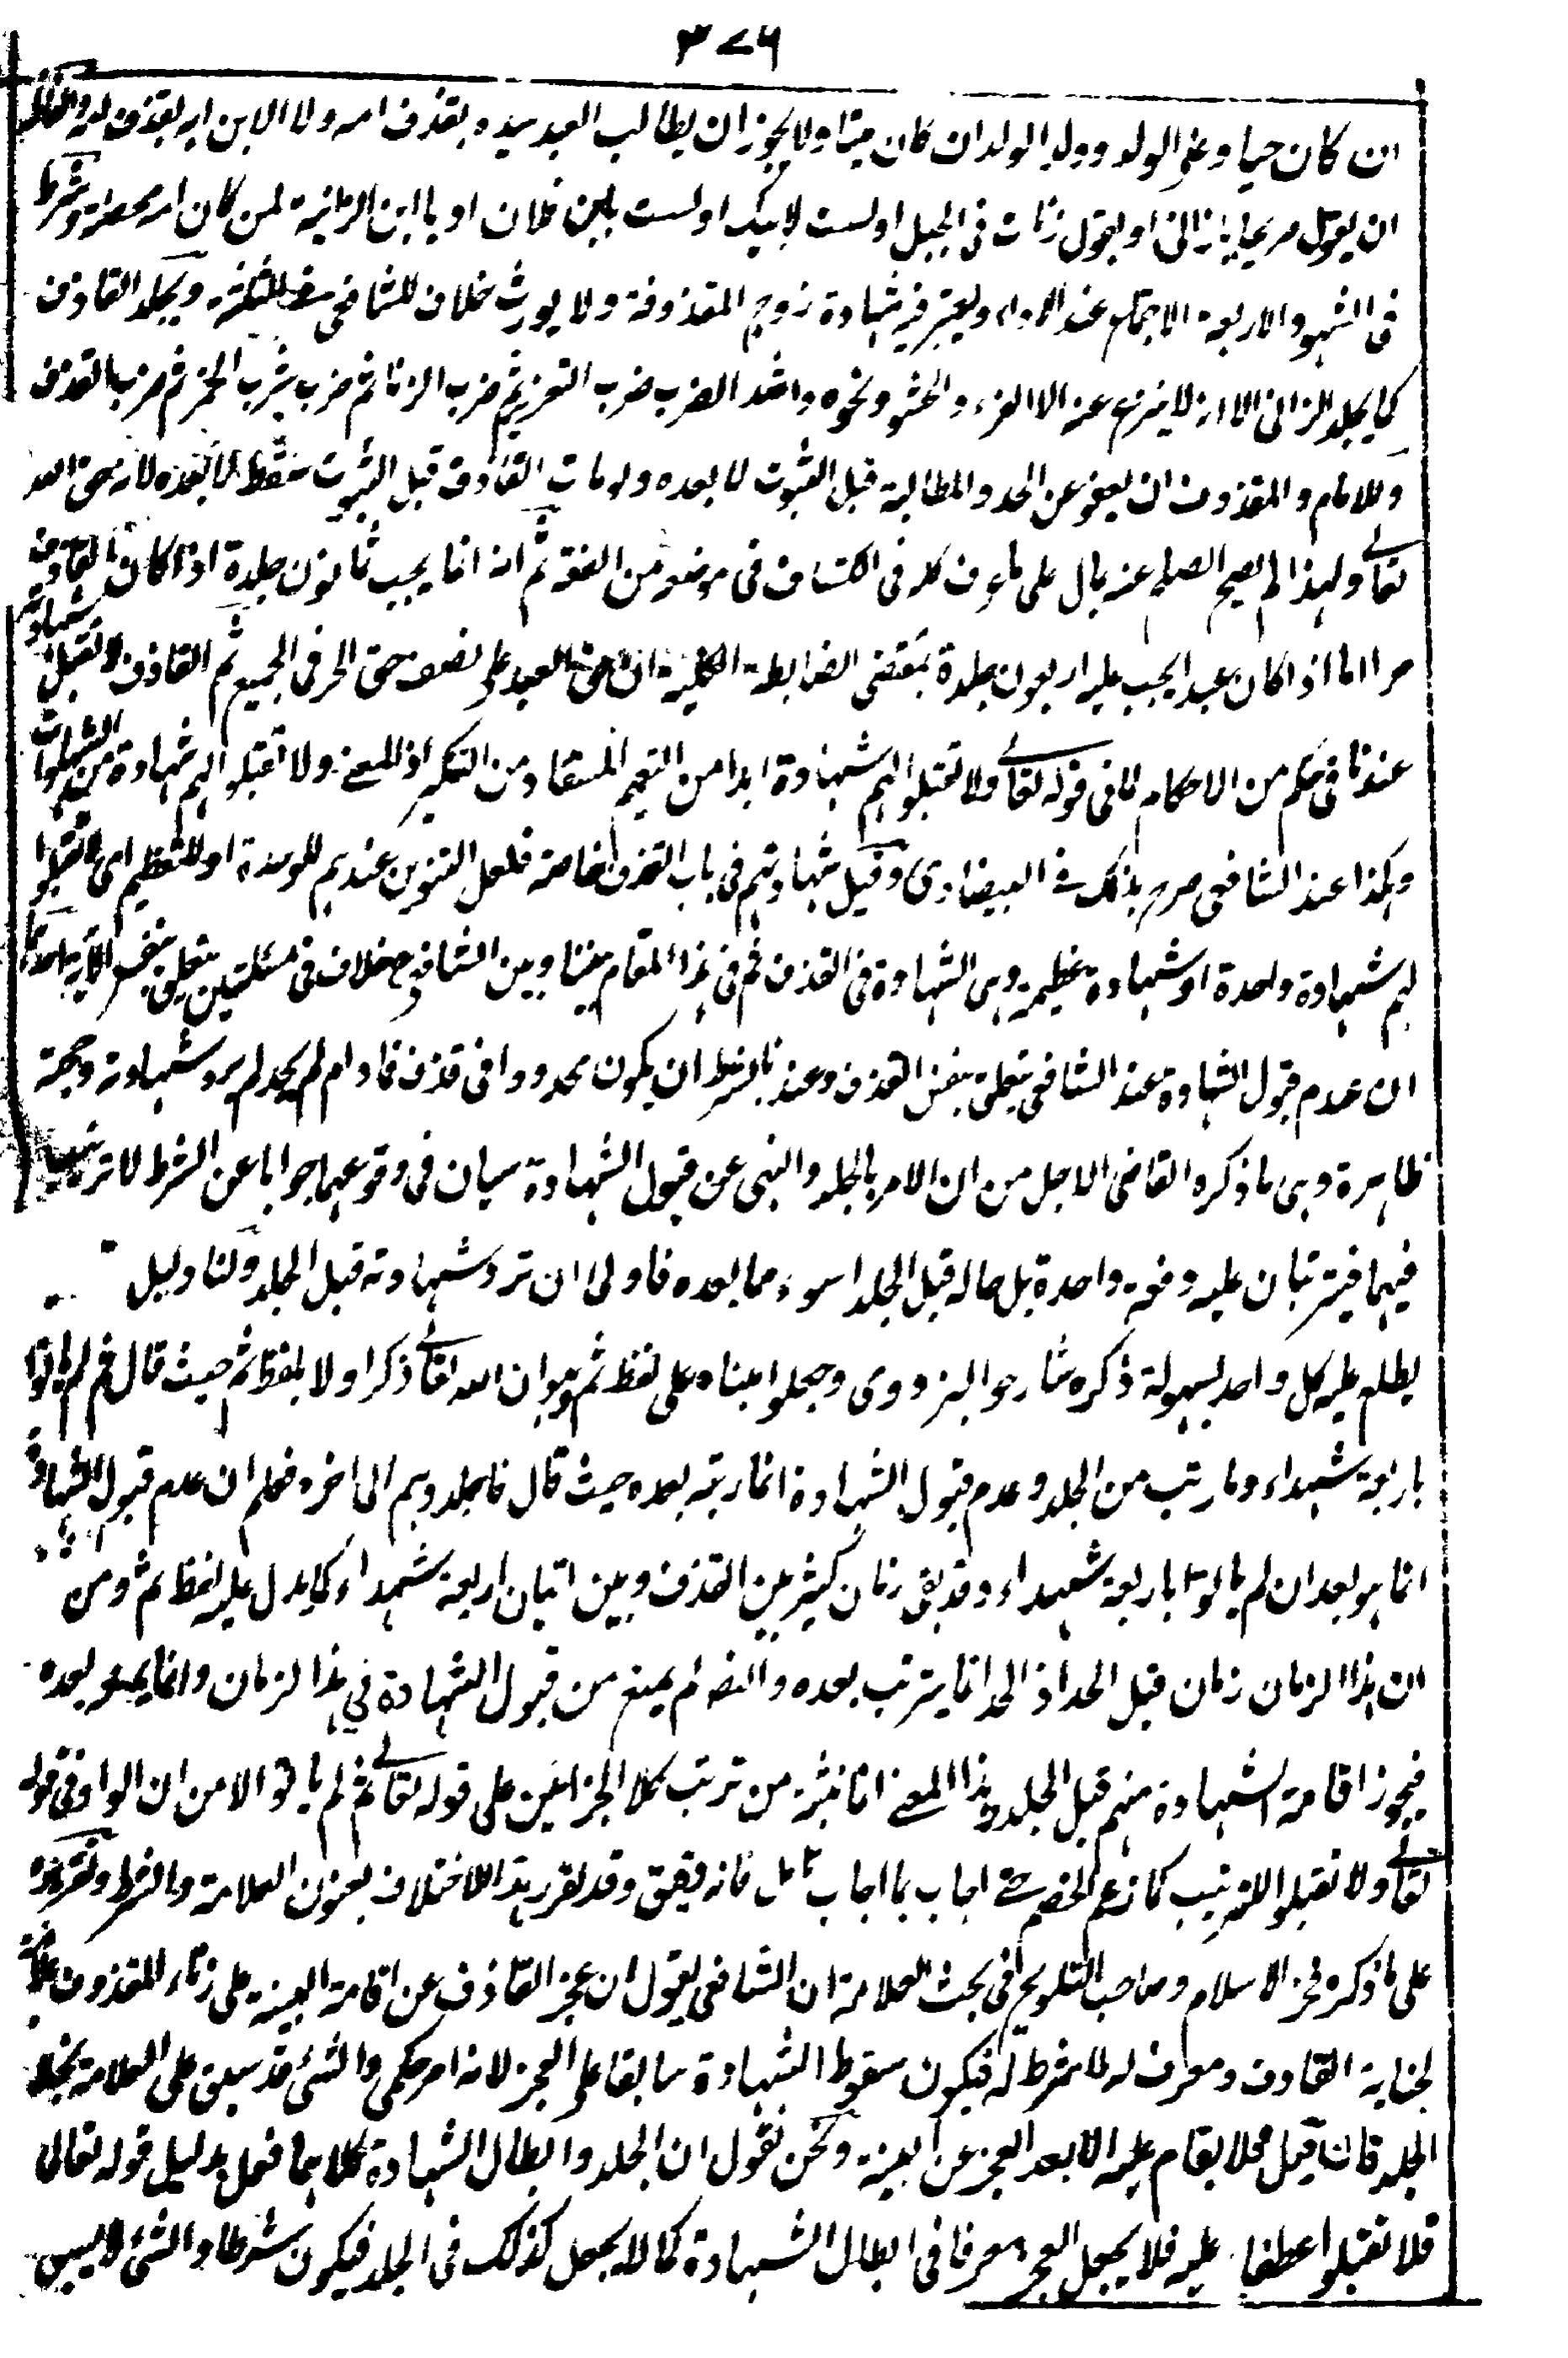 ٣٧٦
ان كان حيا وعلى الولد وولد الولد ان كان ميتا ولا يجوز ان يطالب العبد سيده بقذف امه ولا الابن ابه بقذف امه
ان يقول صريحا يا زانى او يقول زنات فى الجبل او لست لابيك او لست بابن فلان او يا ابن الزانية لمن كان امه محصنة وشرط
فى الشهود الاربعة الاجتماع عند الاداء ويعتبر فيه شهادة زوج المقذوفة ولا يورث خلافا للشافعى ويجلد القاذف
كما يجلد الزانى الا انه لا ينزع عنه الا الفرء والحشو ونحوه واشد الضرب ضرب التعزير ثم ضرب الزنا ثم ضرب شرب الخمر ثم ضرب القذف
وللامام والمقذوف ان يعفو عن الحد والمطالبة قبل الثبوت لا بعده ولو مات القاذف قبل الثبوت سقط لا بعده لانه حق الله
تعالى ولهذا لم يصح الصلح عنه بمال على ما عرف كله فى الكشاف فى موضعه من الفقه ثم انه انما يجب ثمانون جلدة اذا كان القاذف
حرا اما اذا كان عبدا يجب عليه اربعون جلدة بمقتضى الضابطة الكلية ان حق العبد على نصف حق الحر فى الجميع ثم القاذف لا تقبل شهادته
عندنا فى حكم من الاحكام لما فى قوله تعالى ولا تقبلوا لهم شهادة ابدا من التعميم المستفاد من التنكير اذ المعنى ولا تقبلوا لهم شهادة من الشهادات
وهكذا عند الشافعى صرح بذلك فى البيضاوى وقيل شهادتهم فى باب القذف خاصة فلعل التنوين عندهم للوحدة او للتعظيم اى لا تقبلوا
لهم شهادة واحدة او شهادة عظيمة وهى الشهادة فى القذف ثم فى هذا المقام بيننا وبين الشافعى خلاف فى مسئلتين يتعلق بتفسير الآية احدهما
ان عدم قبول الشهادة عند الشافعى يتعلق بنفس القذف وعندنا بشرط ان يكون محدودا فى قذف فما دام لم يحد لم يرد شهادته وحجته
ظاهرة وهى ما ذكره القاضى الاجل من ان الامر بالجلد والنهى عن قبول الشهادة سيان فى وقوعهما جوابا عن الشرط لا ترتيب
فيهما فيترتبان عليه دفعة واحدة بل حاله قبل الجلد اسوء مما بعده فاولى ان ترد شهادته قبل الجلد ولنا دليل
يطلع عليه كل واحد بسهولة ذكره شارحو البزدوى وجعلوا مبناه على لفظ ثم وهو ان الله تعالى ذكر اولا بلفظ ثم حيث قال ثم لم ياتوا
باربعة شهداء وما رتب من الجلد وعدم قبول الشهادة انما رتبه بعده حيث قال فاجلدوهم الى اخره فعلم ان عدم قبول الشهادة
انما هو بعد ان لم ياتوا باربعة شهداء وقد بقى زمان كثير بين القذف وبين اتيان اربعة شهداء كما يدل عليه لفظ ثم ومن
ان هذا الزمان زمان قبل الحد اذ الحد انما يترتب بعده والنص لم يمنع من قبول الشهادة فى هذا الزمان وانما يمنع بعده
فيجوز اقامة الشهادة منهم قبل الجلد وهذا المعنى انما نشأ من ترتب كلا الجزائين على قوله تعالى ثم لم ياتوا لا من ان الواو فى قوله
تعالى ولا تقبلوا للترتيب كما زعم الخصم حتى اجاب بما اجاب تامل فانه دقيق وقد تقرر هذا الاختلاف بعنوان العلامة والشرط وتقريره
على ما ذكره فخر الاسلام وصاحب التلويح فى بحث العلامة ان الشافعى يقول ان عجز القاذف عن اقامة البينة على زناء المقذوف علامة
لجناية القاذف ومعرف له لا شرط له فيكون سقوط الشهادة سابقا على العجز لانه امر حكمى والشئ قد يسبق على العلامة بخلاف
الجلد فانه فعل فلا يقام عليه الا بعد العجز عن البينة ونحن نقول ان الجلد وابطال الشهادة كلاهما فعل بدليل قوله تعالى
فلا تقبلوا عطفا عليه فلا يجعل العجز معرفا فى ابطال الشهادة كما لا يجعل كذلك فى الجلد فيكون شرطا والشئ لا يسبق